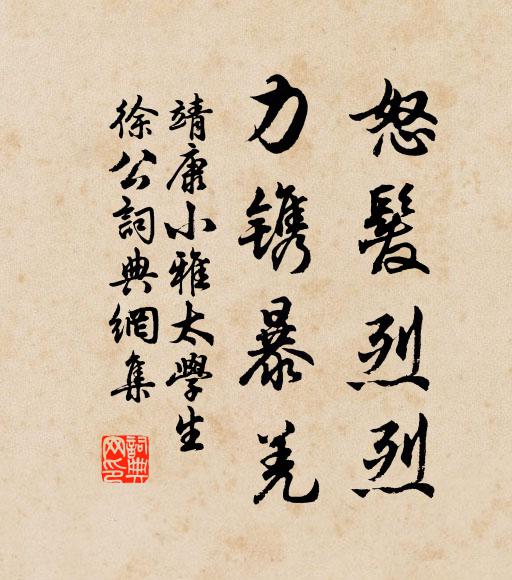 怒髮烈烈
力鐫暴羌
靖康小雅太學生
徐公詞典網集
詞典
网印